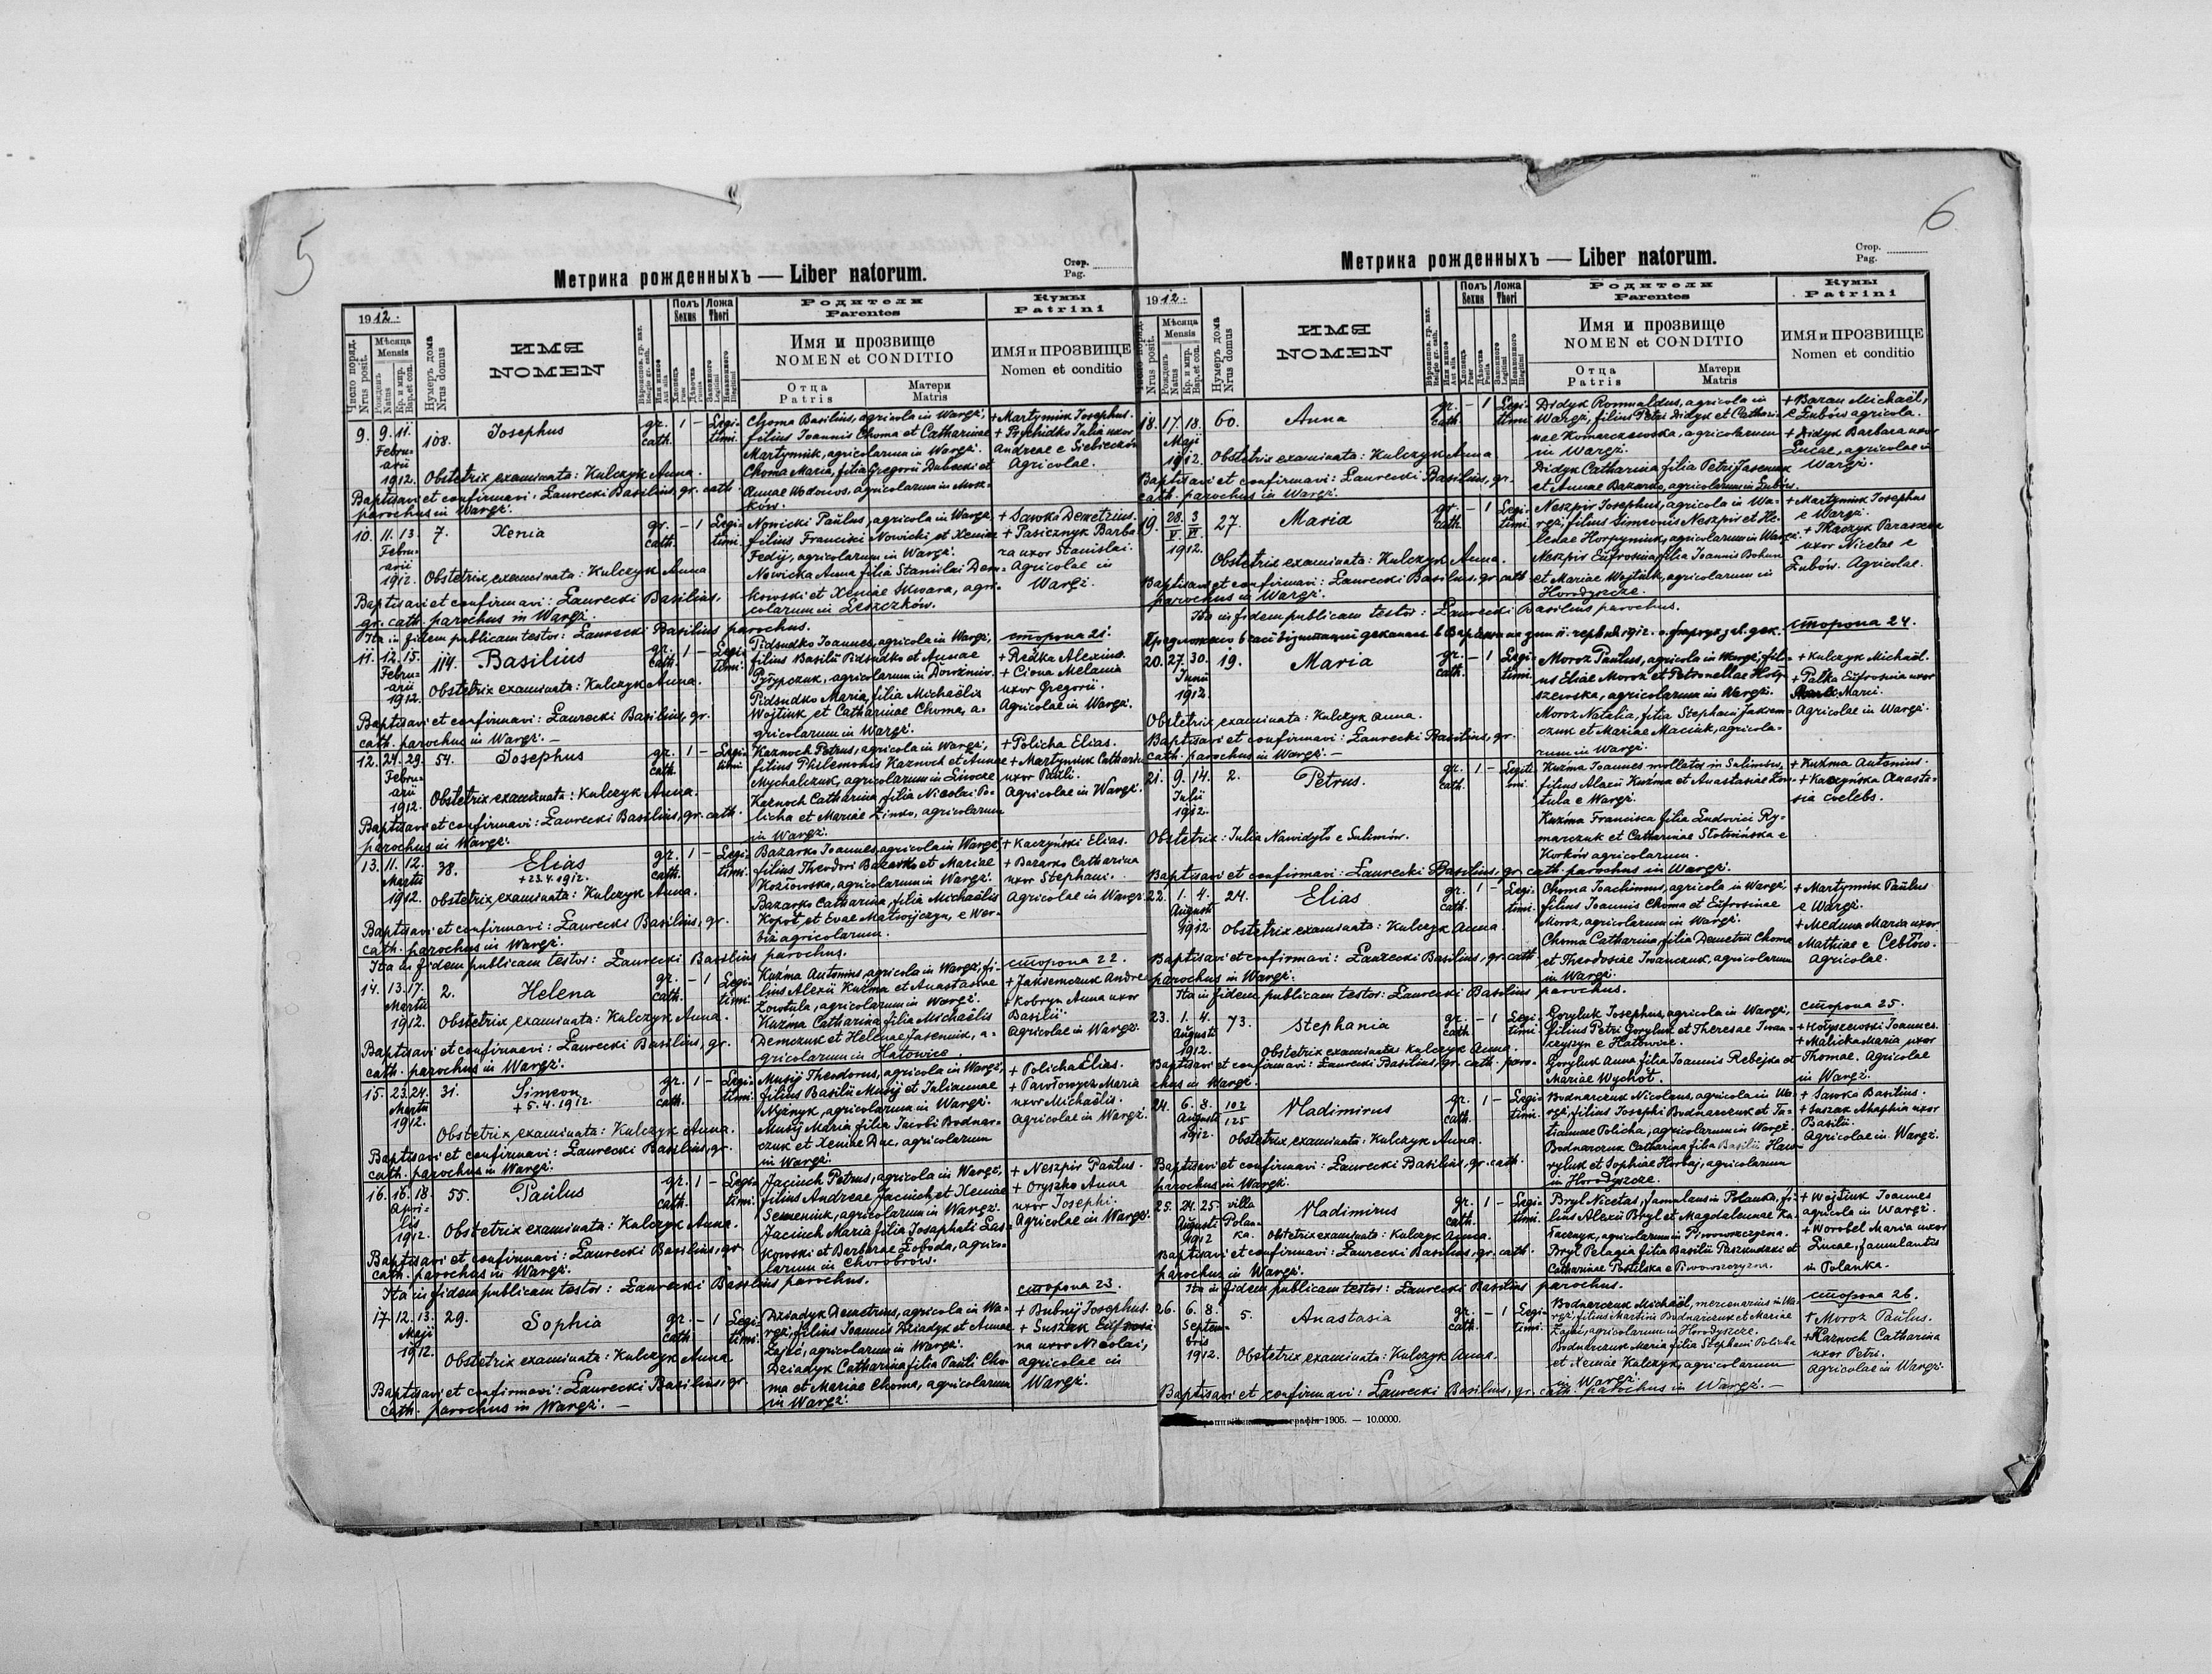 5
Метрика рожденныхъ — Liber natorum.
Стор.
Pag.
1912.
Число поряд.
Nrus posit.
Мѣсяца
Mensis
Рожденъ
Natus
Кр. и мир.
Bap. et con.
Нумеръ дома
Nrus domus
ИМЯ
NOMEN
Полъ
Sexus
Ложа
Thori
Родители
Parentes
Имя и прозвище
NOMEN et CONDITIO
Отца
Patris
Матери
Matris
Кумы
Patrini
ИМЯ и ПРОЗВИЩЕ
Nomen et conditio
9. 9. 11. Februarii 1912. 108. Josephus gr. cath. 1 – Legitimi.
Choma Basilius, agricola in Waręż,
filius Joannis Choma et Catharinae
Martyniuk, agricolarum in Waręż.
Choma Maria, filia Gregorii
Annae agricolarum in
+ Martyniuk Josephus.
+ Prychidko Julia uxor
Andreae e
Agricolae.
Obstetrix examinata: Kulczyk Anna.
Baptisavi et confirmavi: Ławrecki Basilius, gr. cath.
parochus in Waręż.
10. 11. 13. Februarii 1912. 7. Xenia gr. cath. – 1 Legitimi.
Nowicki Paulus, agricola in Waręż,
filius Francisci Nowicki et Xeniae
Fedij, agricolarum in Waręż.
Nowicka Anna filia Stanislai Dem-
kowski et Xeniae agri-
colarum in Leszczków.
+ Sawka Demetrius.
+ Pasicznyk Barba-
ra uxor Stanislai.
Agricolae in
Waręż.
Obstetrix examinata: Kulczyk Anna
Baptisavi et confirmavi: Ławrecki Basilius,
gr. cath. parochus in Waręż.
Ita in fidem publicam testor: Ławrecki Basilius parochus.
сторона 21.
11. 12. 15. Februarii 1912. 114. Basilius gr. cath. 1 – Legitimi.
Pidsudko Joannes, agricola in Waręż,
filius Basilii Pidsudko et Annae
agricolarum in
Pidsudko Maria, filia Michaëlis
Wojtiuk et Catharinae Choma, a-
gricolarum in Waręż.
+ Redka Alexius.
+ Ciona Melania
uxor Gregorii.
Agricolae in Waręż.
Obstetrix examinata: Kulczyk Anna.
Baptisavi et confirmavi: Ławrecki Basilius, gr.
cath. parochus in Waręż. –
12. 24. 29. Februarii 1912. 54. Josephus gr. cath. 1 – Legitimi.
Kaznoch Petrus, agricola in Waręż,
filius Philemonis Kaznoch et Annae
Mychalczuk, agricolarum in
Kaznoch Catharina, filia Nicolai Po-
licha et Mariae Zinko, agricolarum
in Waręż.
+ Policha Elias.
+ Martyniuk Catharina
uxor Pauli.
Agricolae in Waręż.
Obstetrix examinata: Kulczyk Anna.
Baptisavi et confirmavi: Ławrecki Basilius, gr. cath.
parochus in Waręż.
13. 11. 12. Martii 1912. 38. Elias
+ 23.4.1912.
gr. cath. 1 – Legitimi.
Bazarko Joannes, agricola in Waręż,
filius Theodori Bazarko et Mariae
Kozłowska, agricolarum in Waręż.
Bazarko Catharina, filia Michaëlis
Kopot et Evae Matwijczyn, e Wer-
biż agricolarum.
+ Kaczyński Elias.
+ Bazarko Catharina
uxor Stephani.
Agricolae in Waręż.
Obstetrix examinata: Kulczyk Anna.
Baptisavi et confirmavi: Ławrecki Basilius, gr.
cath. parochus in Waręż.
Ita in fidem publicam testor: Ławrecki Basilius parochus.
сторона 22.
14. 13. 17. Martii 1912. 2. Helena gr. cath. – 1 Legitimi.
Kuźma Antonius, agricola in Waręż, fi-
lius Alexii Kuźma et Anastasiae
agricolarum in Waręż.
Kuźma Catharina filia Michaëlis
Demczuk et Helenae Jaseniuk, a-
gricolarum in Hatowice.
+ Jaksemczuk Andre
+ Kobryn Anna uxor
Basilii.
Agricolae in Waręż.
Obstetrix examinata: Kulczyk Anna.
Baptisavi et confirmavi: Ławrecki Basilius, gr.
cath. parochus in Waręż.
15. 23. 24. Martii 1912. 31. Simeon
+ 5.4.1912.
gr. cath. 1 – Legitimi.
Musij Theodorus, agricola in Waręż,
filius Basilii Musij et Julianae
agricolarum in Waręż.
Musij Maria filia Jacobi Bodnar-
czuk et Xeniae Duc, agricolarum
in Waręż.
+ Policha Elias.
+ Pawłowycz Maria
uxor Michaëlis.
Agricolae in Waręż.
Obstetrix examinata: Kulczyk Anna.
Baptisavi et confirmavi: Ławrecki Basilius, gr.
cath. parochus in Waręż.
16. 16. 18. Aprilis 1912. 55. Paulus gr. cath. 1 – Legitimi.
Jaciuch Petrus, agricola in Waręż,
filius Andreae Jaciuch et Xeniae
Semeniuk, agricolarum in Waręż.
Jaciuch Maria filia Josaphati Las-
kowski et Barbarae Łoboda, agrico-
larum in Chorobrów.
+ Neszpir Paulus.
+ Oryszko Anna
uxor Josephi.
Agricolae in Waręż.
Obstetrix examinata: Kulczyk Anna.
Baptisavi et confirmavi: Ławrecki Basilius, gr.
cath. parochus in Waręż.
Ita in fidem publicam testor: Ławrecki Basilius parochus.
сторона 23.
17. 12. 13. Maji 1912. 29. Sophia gr. cath. – 1 Legitimi.
Dziadyk Demetrius, agricola in Wa-
ręż, filius Joannis Dziadyk et Annae
Zajac, agricolarum in Waręż.
Dziadyk Catharina filia Pauli Cho-
ma et Mariae Choma, agricolarum
in Waręż.
+ Bubnij Josephus.
+ Suszak Eufrosi-
na uxor Nicolai,
agricolae in
Waręż.
Obstetrix examinata: Kulczyk Anna.
Baptisavi et confirmavi: Ławrecki Basilius, gr.
cath. parochus in Waręż. –
6
Метрика рожденныхъ — Liber natorum.
Стор.
Pag.
1912.
Nrus posit.
Мѣсяца
Mensis
Рожденъ
Natus
Кр. и мир.
Bap. et con.
Нумеръ дома
Nrus domus
ИМЯ
NOMEN
Полъ
Sexus
Ложа
Thori
Родители
Parentes
Имя и прозвище
NOMEN et CONDITIO
Отца
Patris
Матери
Matris
Кумы
Patrini
ИМЯ и ПРОЗВИЩЕ
Nomen et conditio
18. 17. 18. Maji 1912. 60. Anna gr. cath. – 1 Legitimi.
Didyk Romualdus, agricola in
Waręż, filius Petri Didyk et Cathari-
nae Komarczewska, agricolarum
in Waręż.
Didyk Catharina filia Petri Jaseniuk
et Annae Bazarko, agricolarum in Łubów.
+ Baran Michaël,
e Łubów agricola.
+ Didyk Barbara uxor
Lucae, agricolae in
Waręż.
Obstetrix examinata: Kulczyk Anna
Baptisavi et confirmavi: Ławrecki Basilius, gr.
cath. parochus in Waręż.
19. 28/V. 3/VI. 1912. 27. Maria gr. cath. – 1 Legitimi.
Neszpir Josephus, agricola in Wa-
ręż, filius Simeonis Neszpir et He-
lenae Horpyniuk, agricolarum in Waręż.
Neszpir Eufrosina, filia Joannis Bohun
et Mariae Wojtiuk, agricolarum in
Horodyszcze.
+ Martyniuk Josephus
e Waręż.
+ Tkaczyk Parascea
uxor Nicetae e
Łubów. Agricolae.
Obstetrix examinata: Kulczyk Anna.
Baptisavi et confirmavi: Ławrecki Basilius, gr. cath.
parochus in Waręż.
Ita in fidem publicam testor: Ławrecki Basilius parochus.
сторона 24.
20. 27. 30. Junii 1912. 19. Maria gr. cath. – 1 Legitimi.
Moroz Paulus, agricola in Waręż, fili-
us Eliae Moroz et Petronellae Hoły-
szewska, agricolarum in Waręż.
Moroz Natalia, filia Stephani Jaksem-
czuk et Mariae Maciuk, agricola-
rum in Waręż.
+ Kulczyk Michaël.
+ Palka Eufrosina uxor
Marci.
Agricolae in Waręż.
Obstetrix examinata: Kulczyk Anna.
Baptisavi et confirmavi: Ławrecki Basilius, gr.
cath. parochus in Waręż. –
21. 9. 14. Julii 1912. 2. Petrus. gr. cath. 1 – Legitimi.
Kuźma Joannes mollator in Sulimów,
filius Alexii Kuźma et Anastasiae
e Waręż.
Kuźma Francisca filia Ludovici Ry-
marczuk et Catharinae Słotwińska e
Korków agricolarum.
+ Kuźma Antonius.
+ Kaczyńska Anasta-
sia coelebs.
Obstetrix: Julia Nawidyło e Sulimów.
Baptisavi et confirmavi: Ławrecki Basilius, gr. cath. parochus in Waręż.
22. 1. 4. Augusti 1912. 24. Elias gr. cath. 1 – Legitimi.
Choma Joachimus, agricola in Waręż,
filius Joannis Choma et Eufrosinae
Moroz, agricolarum in Waręż.
Choma Catharina, filia Demetrii Choma
et Theodosiae Iwanczuk, agricolarum
in Waręż.
+ Martyniuk Paulus
e Waręż.
+ Meduna Maria uxor
Mathiae e Cebłów.
Agricolae.
Obstetrix examinata: Kulczyk Anna.
Baptisavi et confirmavi: Ławrecki Basilius, gr. cath.
parochus in Waręż.
Ita in fidem publicam testor: Ławrecki Basilius parochus.
сторона 25.
23. 1. 4. Augusti 1912. 73. Stephania gr. cath. – 1 Legitimi.
Goryluk Josephus, agricola in Waręż,
filius Petri Goryluk et Theresae Iwan-
czyszyn e Hatowice.
Goryluk Anna filia Joannis Rebejko et
Mariae Wychót.
+ Hołyszewski Joannes.
+ Malicka Maria uxor
Thomae. Agricolae
in Waręż.
Obstetrix examinata: Kulczyk Anna.
Baptisavi et confirmavi: Ławrecki Basilius, gr. cath. paro-
chus in Waręż.
24. 6. 8. Augusti 1912. 102/125 Vladimirus gr. cath. 1 – Legitimi.
Bodnarczuk Nicolaus, agricola in Wa-
ręż, filius Josephi Bodnarczuk et Ta-
tianae Policha, agricolarum in Waręż.
Bodnarczuk Catharina filia Basilii Haw-
ryluk et Sophiae Horbaj, agricolarum
in Horodyszcze.
+ Sawka Basilius.
+ Suszak Ahaphia uxor
Basilii.
Agricolae in Waręż.
Obstetrix examinata: Kulczyk Anna.
Baptisavi et confirmavi: Ławrecki Basilius, gr. cath.
parochus in Waręż.
25. 24. 25. Augusti 1912 villa Polanka. Vladimirus gr. cath. 1 – Legitimi.
Bryl Nicetas, famulans in Polanka, fi-
lius Alexii Bryl et Magdalenae Ka-
agricolarum in Piwowszczyzna.
Bryl Pelagia filia Basilii Paszkudzki et
Catharinae Postilska e Piwowszczyzna.
+ Wojtiuk Joannes
agricola in Waręż.
+ Worobel Maria uxor
Lucae, famulantis
in Polanka.
Obstetrix examinata: Kulczyk Anna.
Baptisavi et confirmavi: Ławrecki Basilius, gr. cath.
parochus in Waręż.
Ita in fidem publicam testor: Ławrecki Basilius parochus.
сторона 26.
26. 6. 8. Septembris 1912 5. Anastasia gr. cath. – 1 Legitimi.
Bodnarczuk Michaël, mercenarius in Wa-
ręż, filius Martini Bodnarczuk et Mariae
Zajac, agricolarum in Horodyszcze.
Bodnarczuk Maria filia Stephani Policha
et Xeniae Kulczyk, agricolarum
in Waręż.
+ Moroz Paulus.
+ Kaznoch Catharina
uxor Petri.
Agricolae in Waręż.
Obstetrix examinata: Kulczyk Anna.
Baptisavi et confirmavi: Ławrecki Basilius, gr. cath. parochus in Waręż. –
1905. — 10.0000.